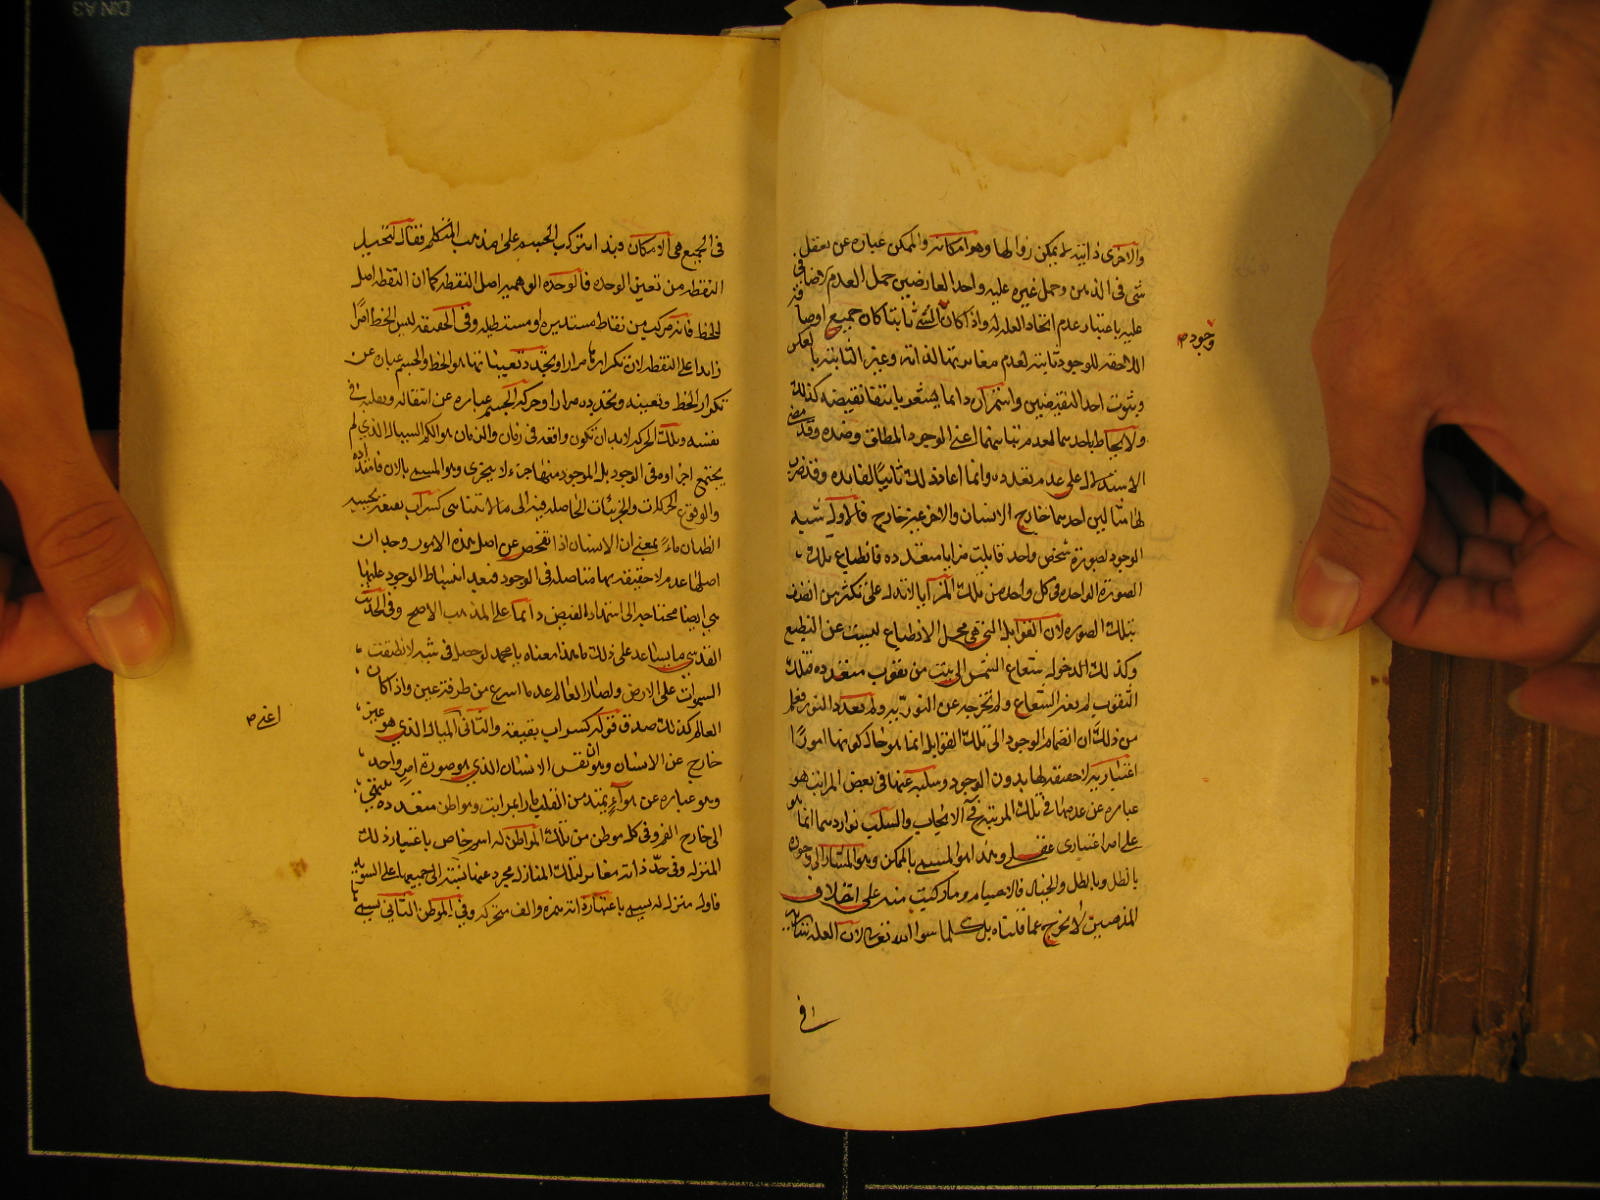 والاخرى ذاتية لا يمكن زوالها وهو امكانه والممكن عبارة عن تعقل
شى فى الذهن وحمل غيره عليه واحد العارضين حمل العدم
عليه باعتبار عدم اتحاد العلة له واذا كان الشى ثابتا كان جميع اوصافه
اللاحقه للوجود ثابته لعدم مغايرتها لذاته وغير الثابته بالعكس
وثبوت احد النقيضين واستمراره دائما يشعر بانتفا نقيضه كذلك
ولا يحاط باحدهما لعدم تناهيهما اعنى الوجود المطلق وضده وقد مضى
الاستدلال على عدم تعدده وانما اعاد ذلك ثانيا لفايده وقد ضرب
لها مثالين احدهما خارج الانسان والاخر غير خارج فالاول شبه
الوجود لصورة شخص واحد قابلت مرايا متعدده فانطباع تلك
الصورة الواحده فى كل واحده من تلك المرايا لا تدل على تكثر من اتصف
بتلك الصوره لان القوابل التى هى محل الانطباع ليست عن النطبع
وكذلك الدخول شعاع الشمس الى بيت من ثقوب متعدده فتلك
الثقوب لم يغير الشعاع ولم تخرجه عن النوريه ولم تعدد النور فعلم
من ذلك ان انضمام الوجود الى تلك القوابل انما هو حال كونها امورا
اعتباريه لا حقيقه لها بدون الوجود وسلبه عنها فى بعض المراتب هو
عبارة عن عدمها فى تلك المرتبه الايجاب والسلب تواردهما انما هو
على امر اعتبارى عقلى وهذا هو المسمى بالممكن وهو المشار الى وجوده
بالظل وبالطل والخيال فالاجسام وما تركبت منه على اختلاف
المذهبين لا يخرج عما قلناه بل كلما سوا الله تقرر لان العله
وجود صح
فى الجميع هى الامكان تركب الجسم على مذهب المتكلم فقال تخيل
النقطه من تعين الوحده فالوحدة الوهميه اصل النقطه كما ان النقطه اصل
الخط فانه مركب من نقاط مستديره او مستطيله وفى الحقيقه ليس الخط امرا
زايدا على النقطه لان تكرارها مرارا وتجدد تعيناتها هو الخط والجسم عبارة عن
تكرار الخط وتعينه وتجدده مرارا وحركة الجسم عباره عن انتقاله وتقلبه فى
نفسه وتلك الحركه لا بد ان تكون واقعه فى زمان والزمان هو الكم السيال الذى لم
يجتمع اجزاوه فى الوجود بل الموجود منها جزء لا يتجزى وهو المسمى بالان
والوقوع الحركات والجزئيات الحاصله فيه الى ما لا يتناهى كسراب بقيعة يحسبه
الظمان ماءً بمعنى ان الانسان اذا تفحص عن اصل هذه الامور وجد ان
اصلها عدم لا حقيقه لها متاصله فى الوجود فبعد انبساط الوجود عليها
هى ايضا محتاجه الى استمداد الفيض دائما على المذهب الاصح وفى الحديث
القدسى ما يساعد على ذلك ما هذا معناه لانطبقت
السموات على الارض ولصار العالم عدما اسرع من طرفة عين واذا كان
العالم كذلك صدق قوله كسراب بقيعة والثانى المثال الذى هو غير
خارج عن الانسان وهو نفس الانسان الذى هو صورة امر واحد
وهو عباره عن هواءٍ يمتد من القلب مارا بمراتب ومواطن متعدده ينتهى
الى خارج الفم وفى كل موطن من تلك المواطن له اسم خاص باعتبار ذلك
المنزل وفى حدّ ذاته مغاير لتلك المنازل مجرد عنها نسبته الى جميعها على السويه
فاول منزل له يسمى باعتباره انه همزه والف متحركه وفى الموطن الثانى يسمى
اعنى صح